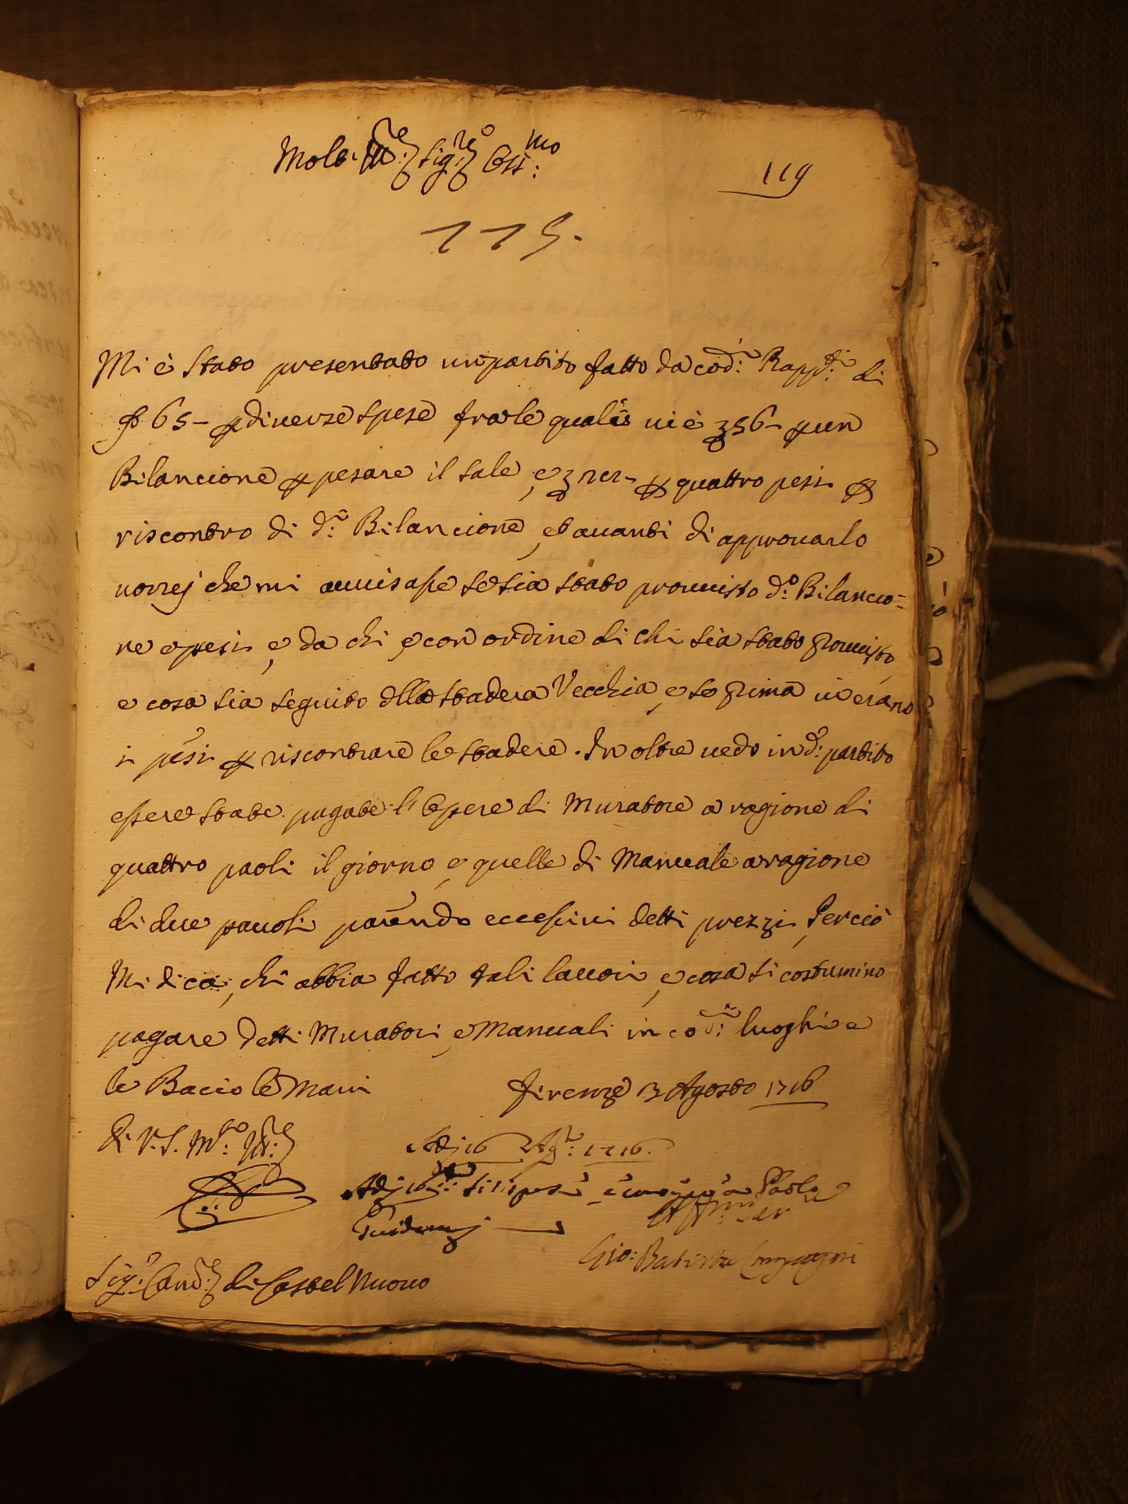 Molt' Ill.re Sig.re Oss.mo
119
115.
Mi è stato presentato un partito fatto da cod.i Rapp.ti di
65 - p diverse spese fra le quali vi è 56 - p un
Bilancione p pesare il sale, e p quattro pesi p
riscontro di d.o Bilancione, et avanti di approvarlo
vorrej che mi avvisasse se sia stato provvisto d.o Bilancio=
ne e pesi, e da chi, e con ordine di chi sia stato provvisto
e cosa sia seguito della stadera Vecchia, e se prima vi erano
i pesi p riscontrare le stadere. In oltre vedo in d.o partito
essere state pagate l'Opere di Muratore a ragione di
quattro paoli il giorno, e quelle di Manuale a ragione
di due pauoli parendo eccessivi detti prezzi, Perciò
Mi dica, chi abbia fatto tali lavori, e cosa si costumino
pagare detti Muratori, e Manuali in cod.i luoghi e
le Bacio le Mani
Firenze 13 Agosto 1716
Di V.S. M.to Ill.re
Adj 16 Ag.to 1716.
Adj 16 si rispose
Paolo
Aff.mo Ser.
Gio: Batista Compagni
Sig.r Canc.re di Castel Nuovo